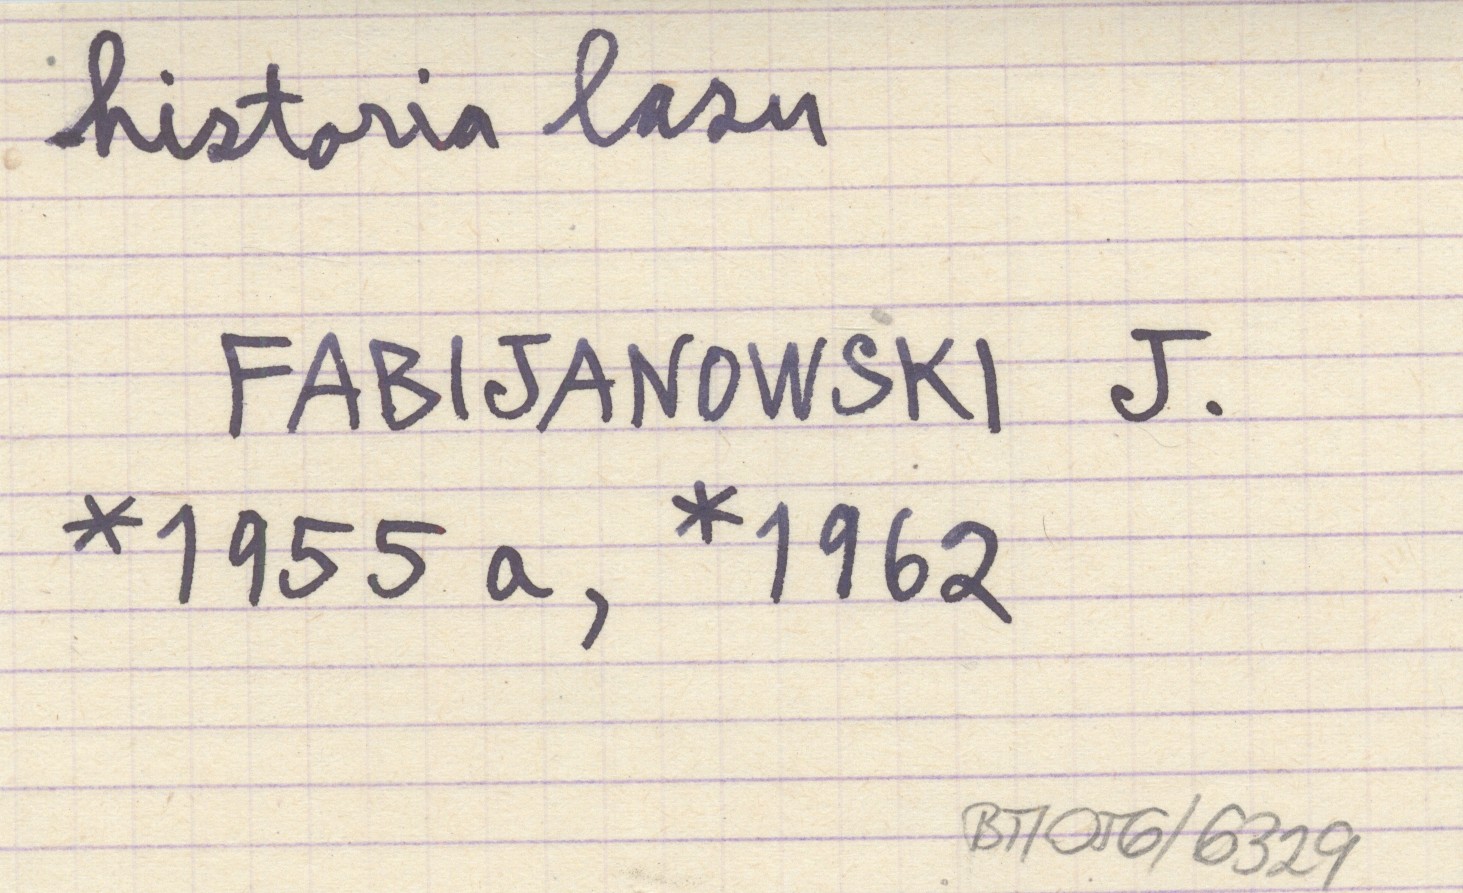 historia lasu
FABIJANOWSKI J.
*1955 a, *1962
BT/OTG/6329